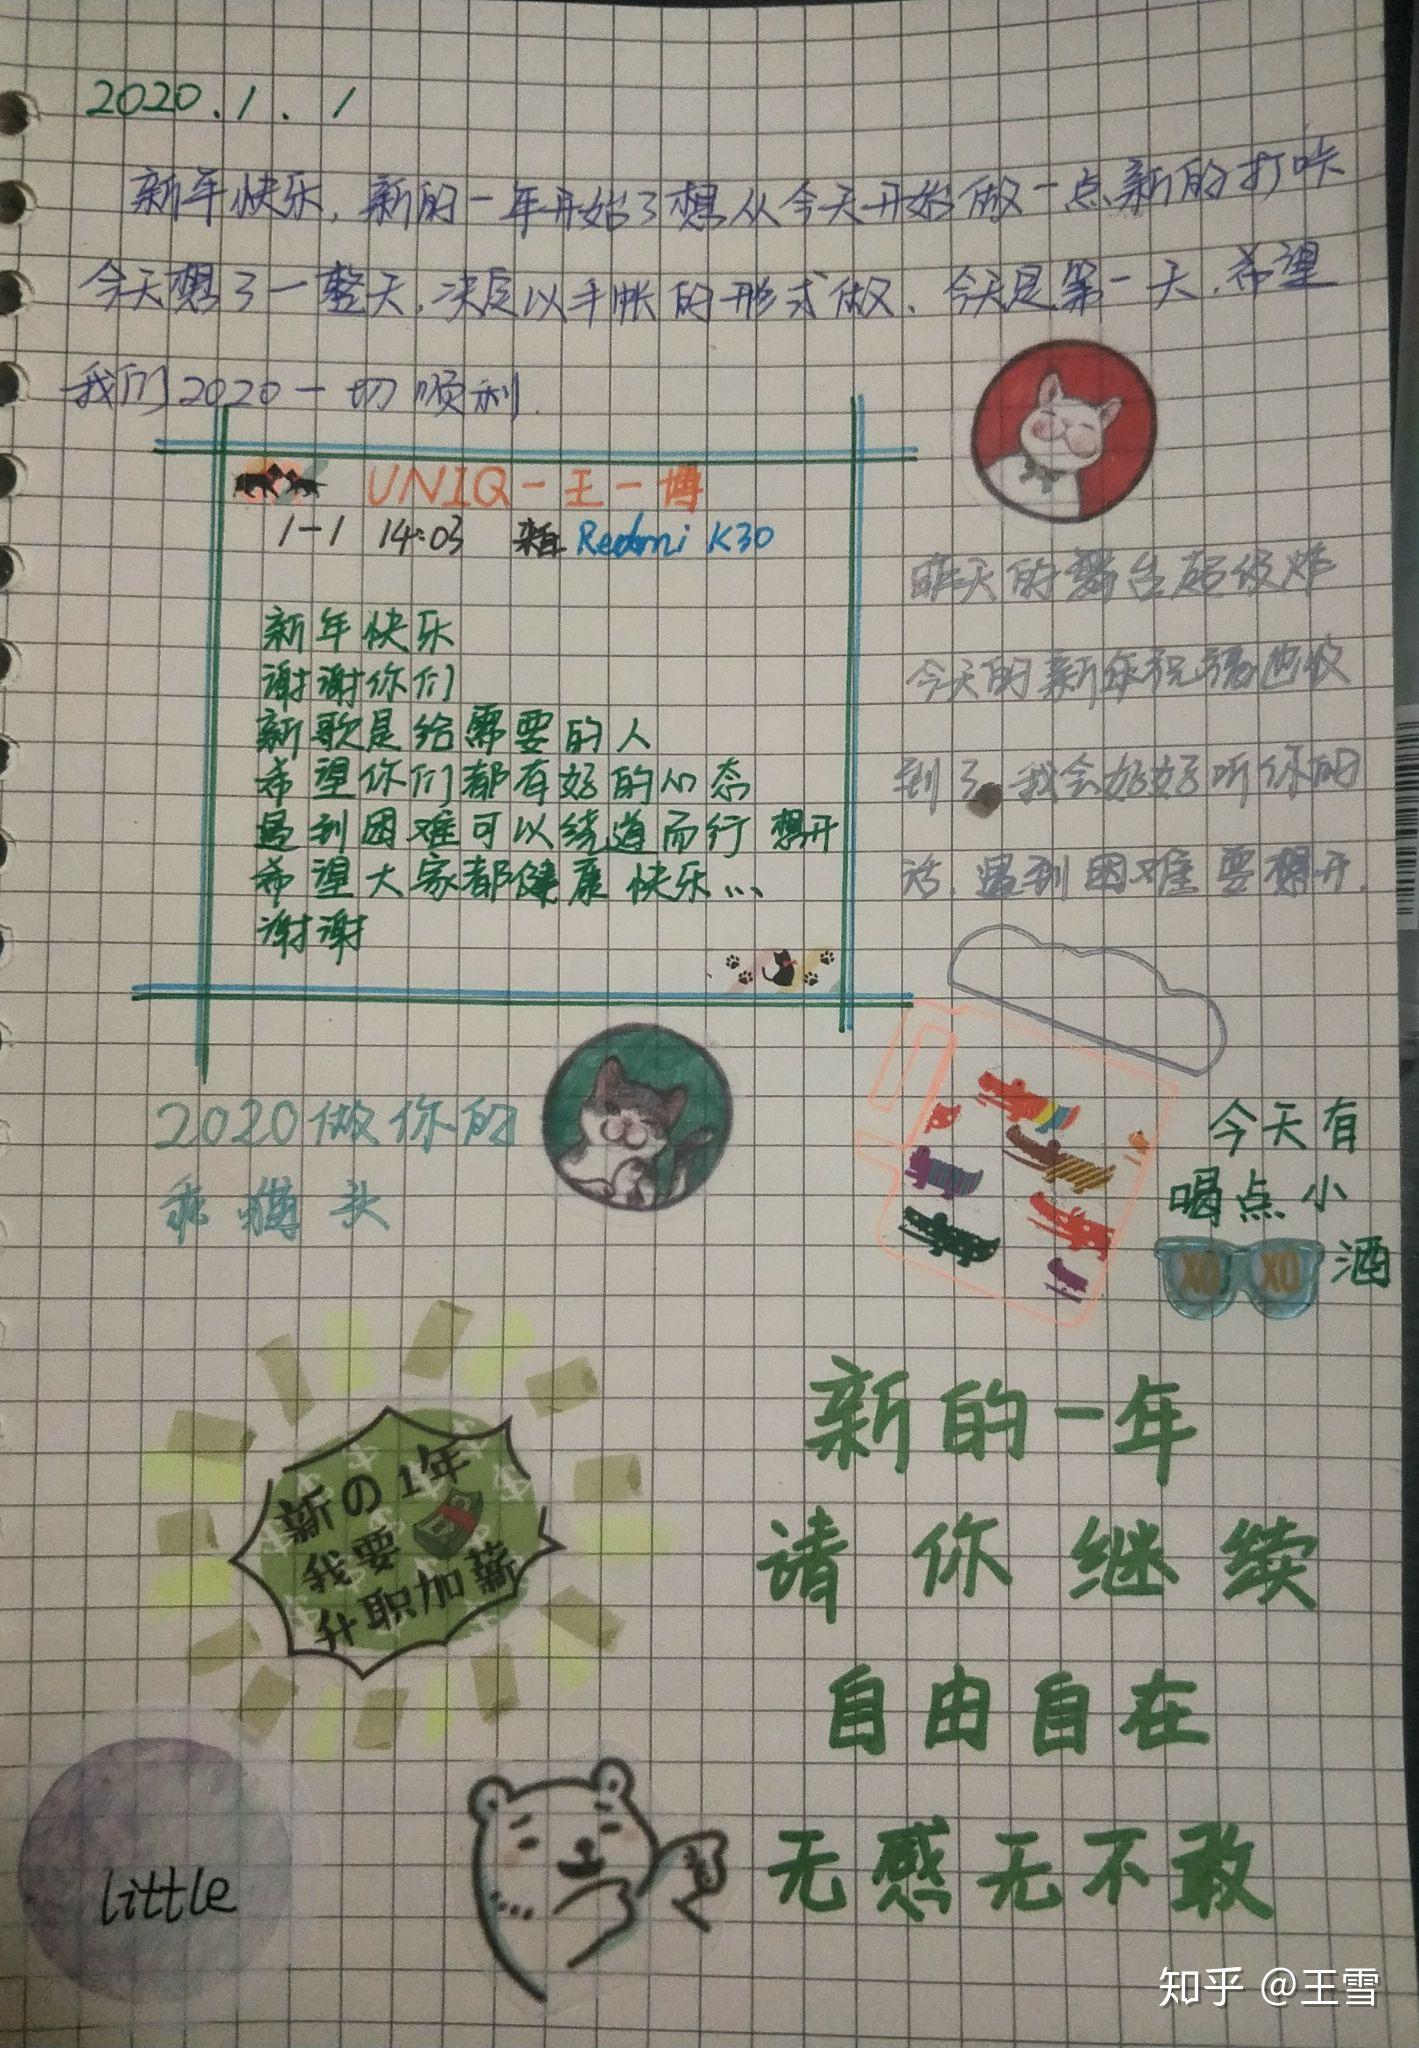 2020.1.1
新年快乐，新的一年开始了想从今天开始做一点新的打咔
今天想了一整天，决定以手帐的形式做、今天是第一天，希望
我们2020一切顺利.
UNIQ-王一博
1-1 14:03 来自 Redmi K30
新年快乐
谢谢你们
新歌是给需要的人
希望你们都有好的心态
遇到困难可以绕道而行 想开
希望大家都健康 快乐...
谢谢
昨天的舞台超级炸
今天的新年祝福也收
到了 我会好好听你的
话.遇到困难要想开.
2020做你的
乖 摊 头
今天有
喝点小
酒
XO XO
新の1年
我要
升职加薪
新的一年
请你继续
自由自在
无感无不敢
little
知乎 @王雪